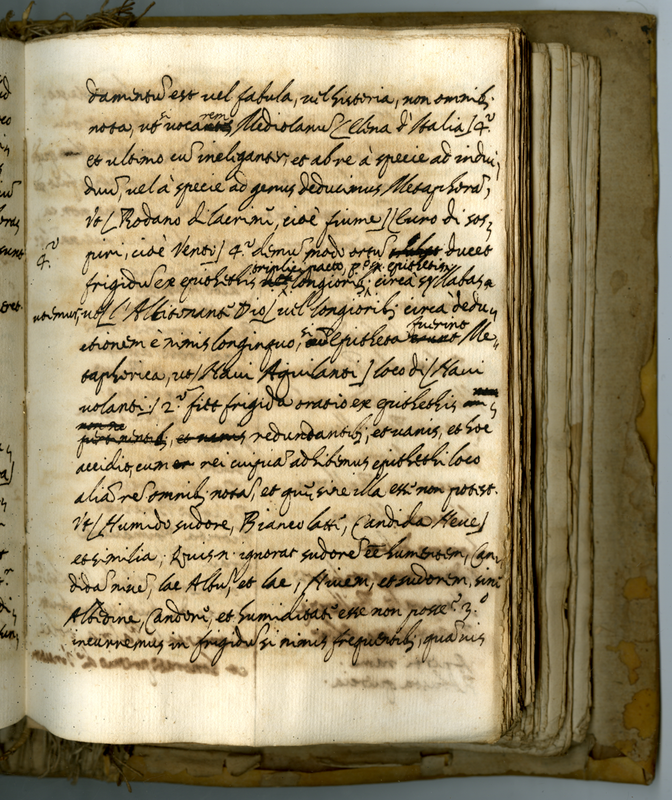 damentũ est vel fabula, vel historia, non omnib;
nota, ut vocarem Mediolanũ [Elena d'Italia] 4.º
et ultimo cũ ineliganter, et ab re à specie ad indiui
duũ, vel à specie ad genus deducimus Metaphorã,
Vt [Rodano di lacrime, cioè fiume] [Euro di sos,
piri, cioè Venti] 4.º demũ modo ortũ ducet
4.º
triplici pacto, p.º ex epithetis
frigidũ ex epithetis longiorib; circa syllabas
utemur, ut [l'Altitonante Dio] vel longiorib; circa dedu,
fuerint
ctionem è nimis longinquo, si epitheta Me,
taphorica, ut [Naui Aquilanti] loco di [Naui
volanti] 2.º fit frigida oratio ex epithetis
non ne
redundantib; et vanis, et hoc
accidit, cum rei cuipiã adhibemus epitheti loco
aliã rẽ omnib; notã, et quę sine illa esse non potest.
Vt [Humido sudore, Bianco latte, Candida Neue]
et similia; Quis n. ignorat sudorẽ eẽ humentem, Can,
didã niuẽ, lac Albũ, et lac, Niuem, et sudorem, sine
Albedine, Candore, et humiditate esse non posse? 3.º
incurremus in frigidũ si nimis frequentib; quãuis